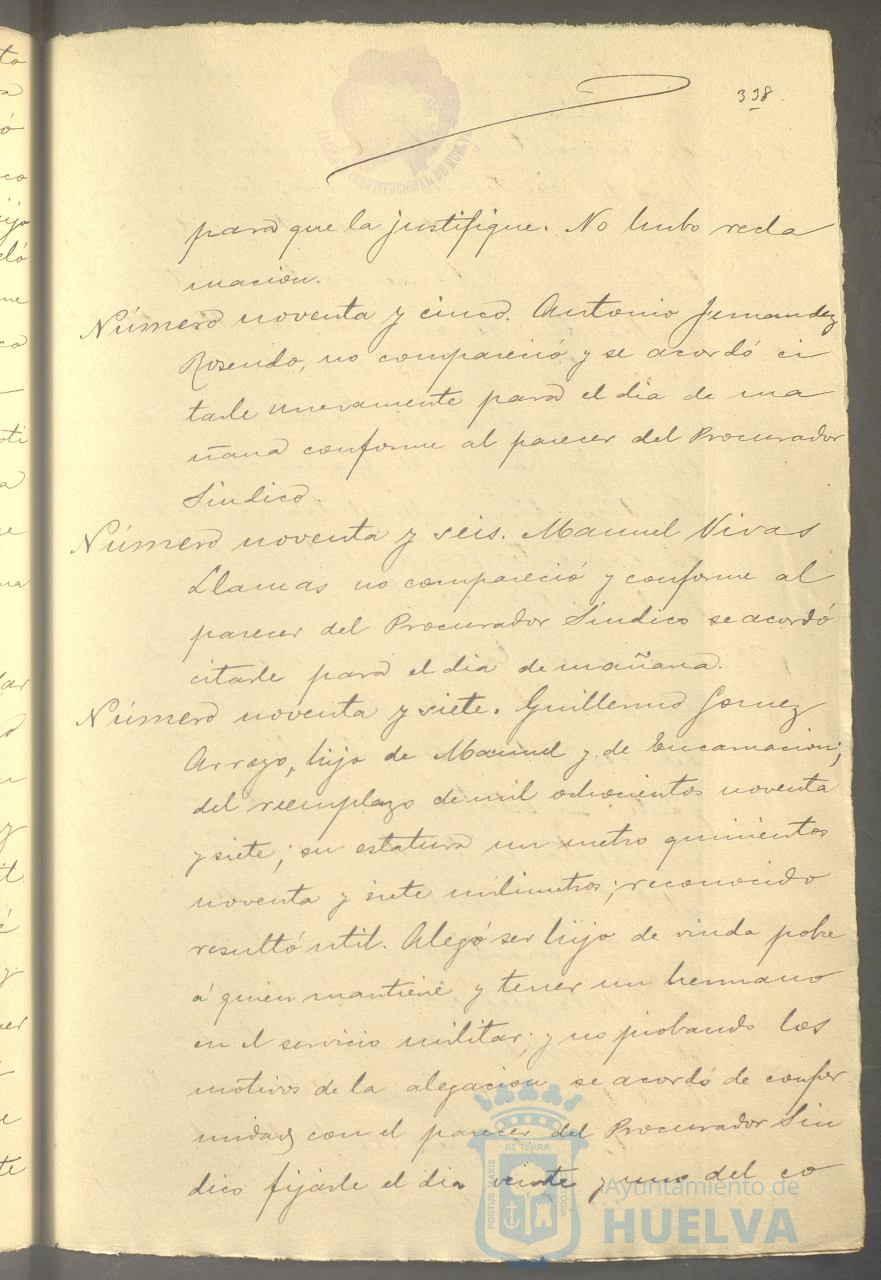 338
para que la justifique. No hubo recla
macion.
Número noventa y cinco. Antonio Fernandez
Rosendo, no compareció y se acordó ci
tarle nuevamente para el dia de ma
ñana conforme al parecer del Procurador
Sindico.
Número noventa y seis. Manuel Vivas
Llamas no compareció y conforme al
parecer del Procurador Sindico se acordó
citarle para el dia de mañana.
Número noventa y siete. Guillermo Gomez
Arroyo, hijo de Manuel y de Encarnacion;
del reemplazo de mil ochocientos noventa
y siete; su estatura un metro quinientos
noventa y siete milimetros; reconocido
resultó util. Alegó ser hijo de viuda pobre
á quien mantiene y tener un hermano
en el servicio militar; y no probando los
motivos de la alegacion se acordó de confor
midad con el parecer del Procurador Sin
dico fijarle el dia veinte y uno del co
Ayuntamiento de
HUELVA
PORTUS MARIS
ET TERRÆ
CUSTODIA